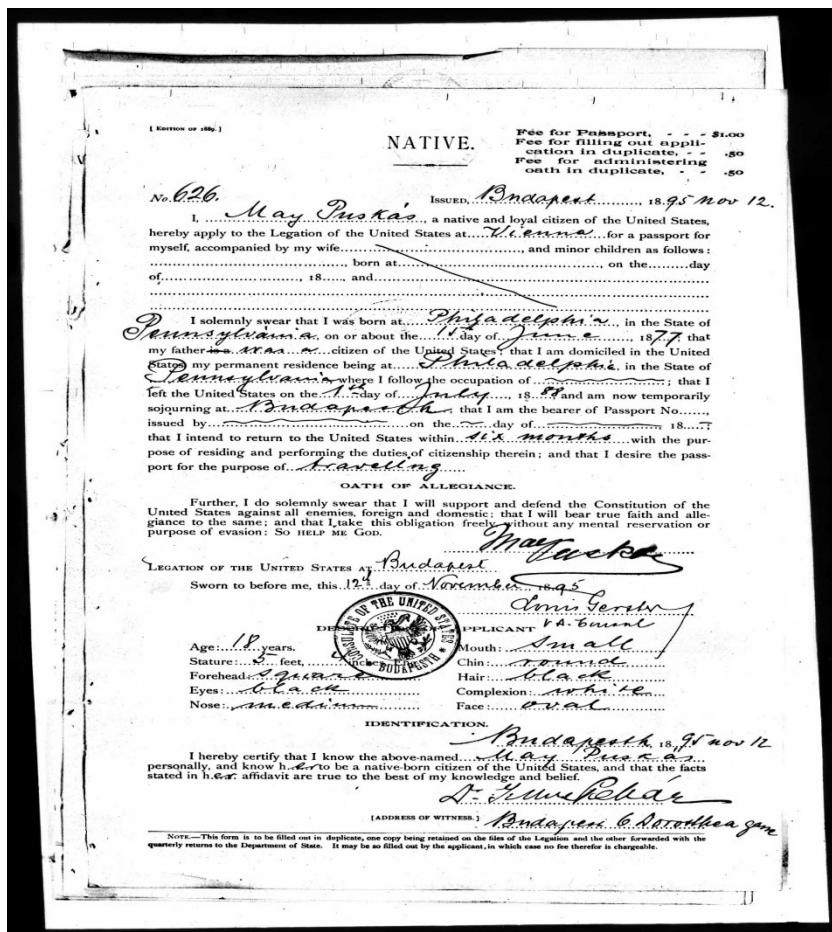 [ EDITION OF 1889. ]
NATIVE.
Fee for Passport, - - - $1.00
Fee for filling out appli-
cation in duplicate, - - .50
Fee for administering
oath in duplicate, - - .50
No. 626. ISSUED, Budapest, 1895 nov 12.
I, May Puskás, a native and loyal citizen of the United States,
hereby apply to the Legation of the United States at Vienna for a passport for
myself, accompanied by my wife, and minor children as follows:
, born at, on the day
of, 18, and
I solemnly swear that I was born at Philadelphia, in the State of
Pennsylvania, on or about the 15th day of June, 1877 that
my father is a was a citizen of the United States; that I am domiciled in the United
States, my permanent residence being at Philadelphia, in the State of
Pennsylvania where I follow the occupation of ; that I
left the United States on the 1st day of July, 1888 and am now temporarily
sojourning at Budapesth; that I am the bearer of Passport No.,
issued by on the day of 18;
that I intend to return to the United States within six months with the pur-
pose of residing and performing the duties of citizenship therein; and that I desire the pass-
port for the purpose of travelling
OATH OF ALLEGIANCE.
Further, I do solemnly swear that I will support and defend the Constitution of the
United States against all enemies, foreign and domestic; that I will bear true faith and alle-
giance to the same; and that I take this obligation freely, without any mental reservation or
purpose of evasion: SO HELP ME GOD.
May Puskás
LEGATION OF THE UNITED STATES AT Budapest
Sworn to before me, this 12th day of November 1895
Louis Gerster
V. A. Consul
CONSULATE OF THE UNITED STATES
BUDAPESTH
APPLICANT
Age: 18 years. Mouth: small
Stature: 5 feet, inches Chin: round
Forehead: square Hair: black
Eyes: black Complexion: white
Nose: medium Face: oval
IDENTIFICATION.
Budapesth, 1895 nov 12
I hereby certify that I know the above-named May Puskás
personally, and know her to be a native-born citizen of the United States, and that the facts
stated in her affidavit are true to the best of my knowledge and belief.
Dr
[ADDRESS OF WITNESS.] Budapest 6 Dorotthea
NOTE.—This form is to be filled out in duplicate, one copy being retained on the files of the Legation and the other forwarded with the
quarterly returns to the Department of State. It may be so filled out by the applicant, in which case no fee therefor is chargeable.